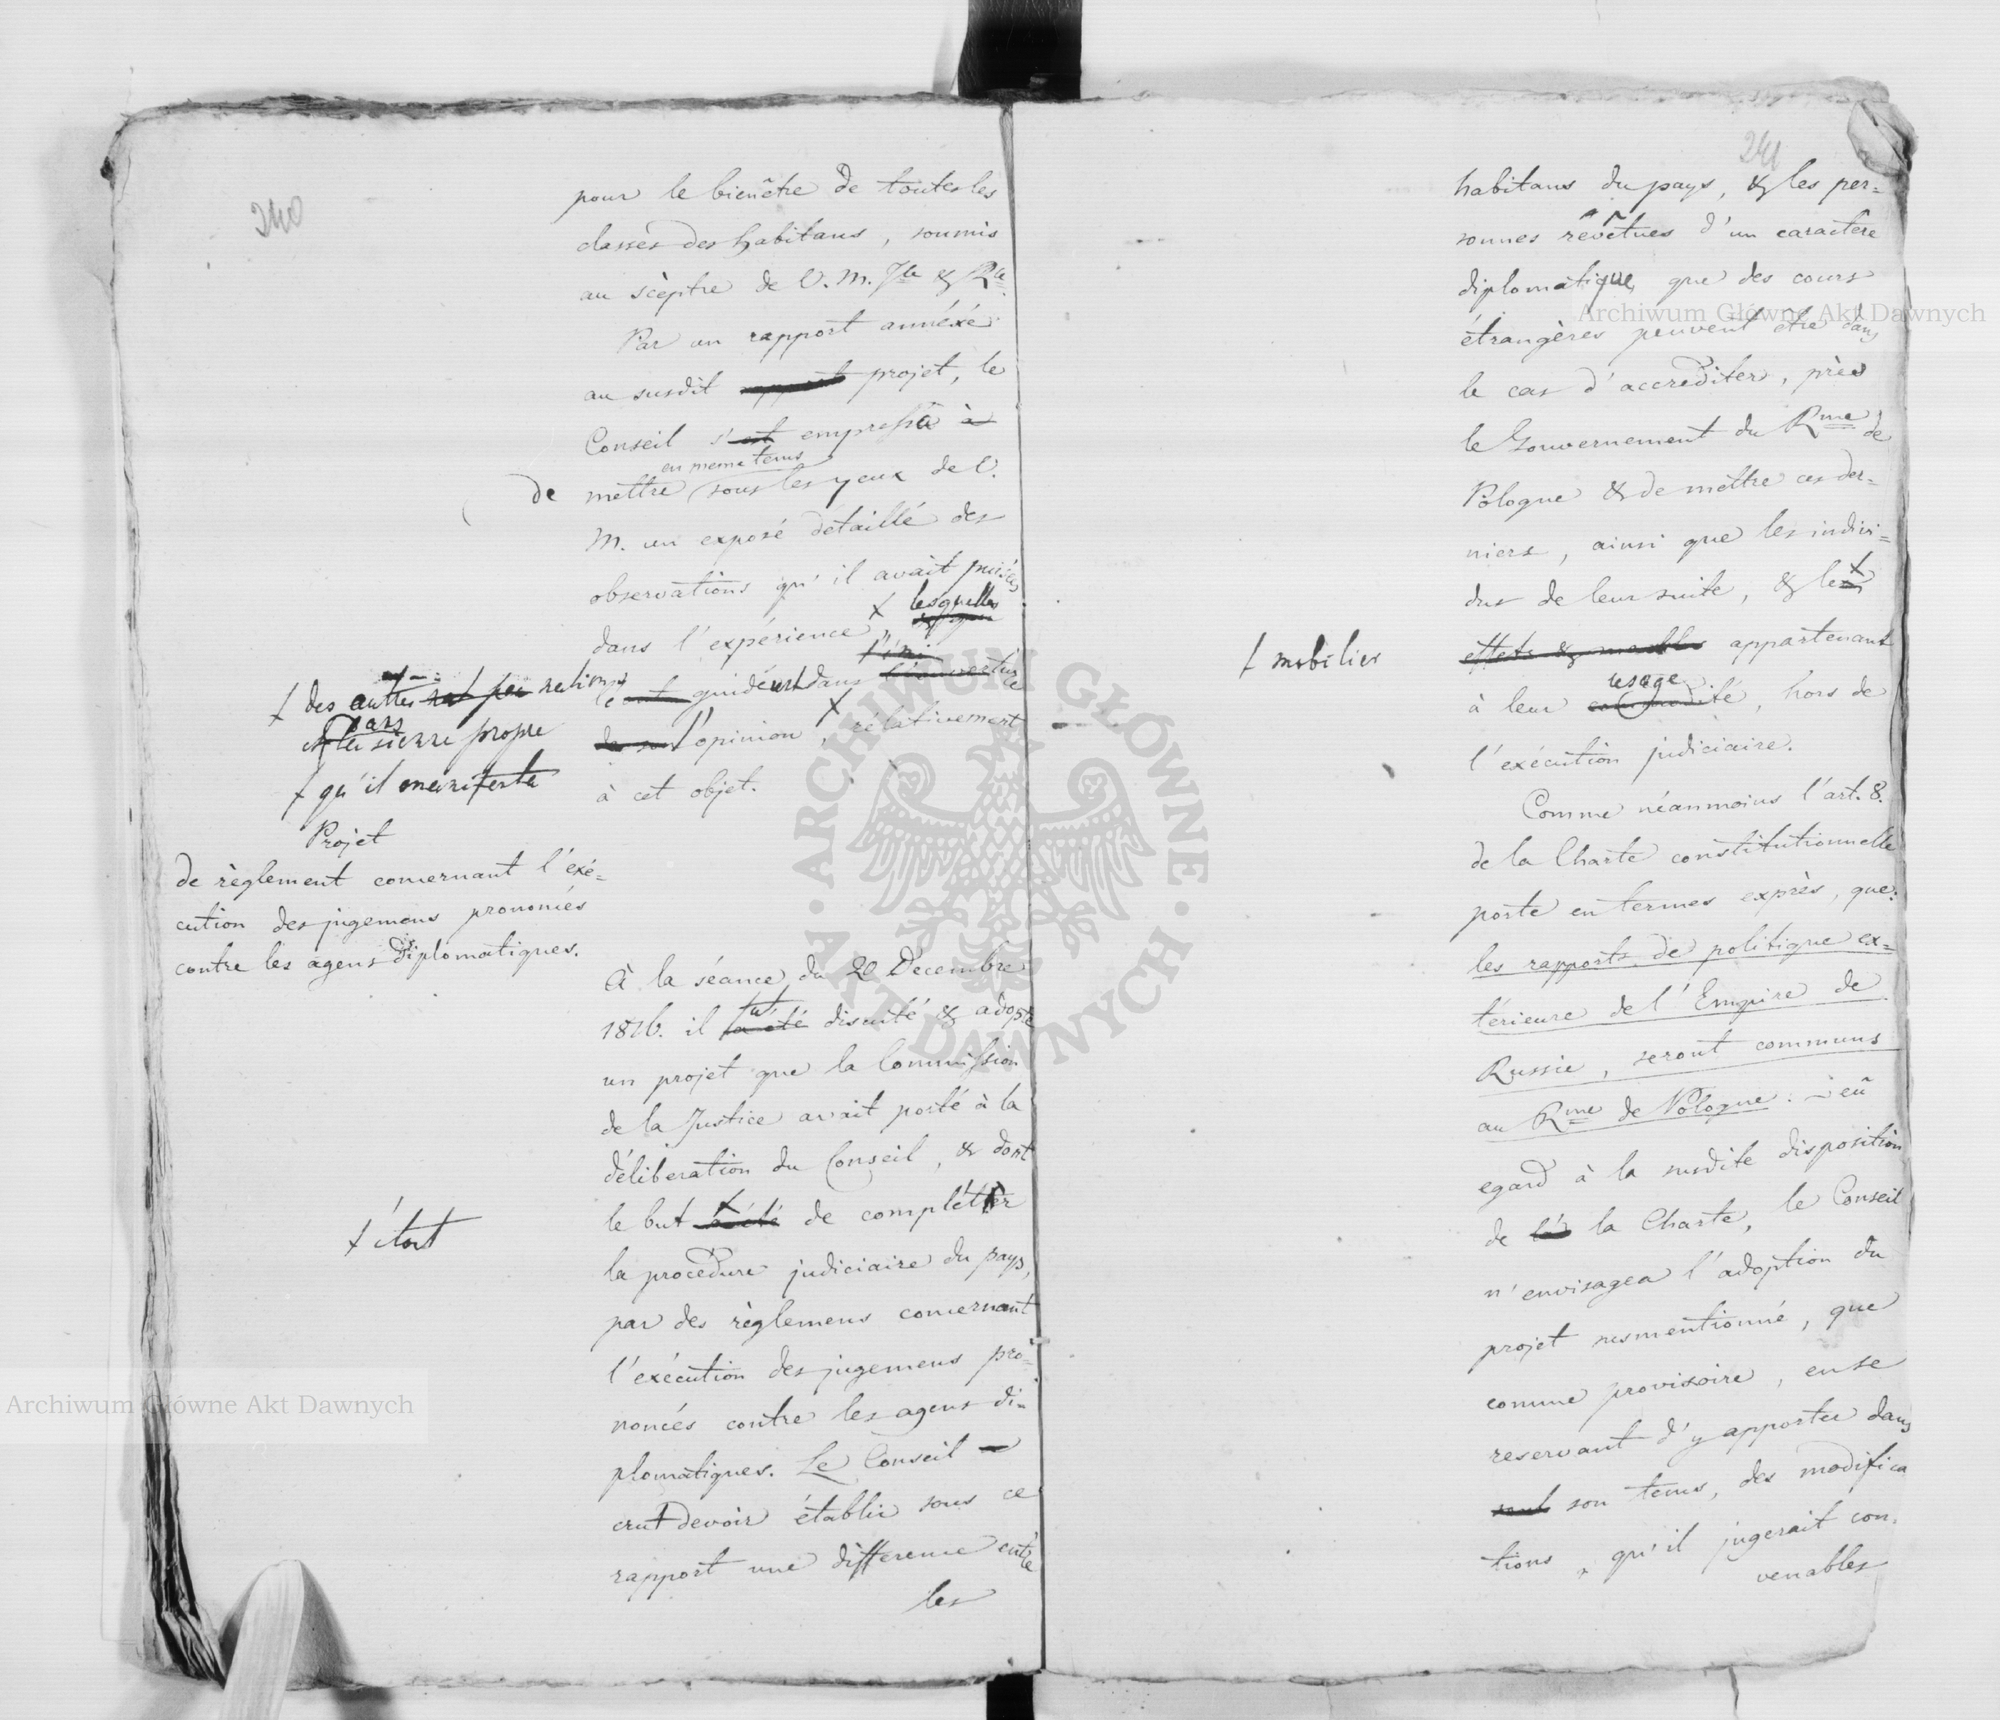 240
pour le bienêtre de toutes les
classes des habitans, soumis
au scèptre de V. M. Jle & Rle.
Par un rapport annéxé
au susdit rapport projet, le
Conseil s'est empressa à
en meme tems
de mettre sous les yeux de V.
M. un exposé détaillé des
observations qu'il avait puisées
dans l'expérience, × lesquelles
guidèrent dans
l'opinion, × rélativement
à cet objet.
× des autres
dans sienne propre
× qu'il manifesta
Projet
de règlement concernant l'éxé-
cution des jugemens prononcés
contre les agens diplomatiques.
À la séance du 20 Décembre
1816. il fut a été discuté & adopté
un projet que la Commission
de la Justice avait porté à la
déliberation du Conseil, & dont
le but × a été de compléter
× étant
la procédure judiciaire du pays,
par des règlemens concernant
l'exécution des jugemens pro-
noncés contre les agens di-
plomatiques. Le Conseil
crut devoir établir sous ce
rapport une différence entre
les
241
habitans du pays, & les per-
sonnes revêtues d'un caractère
diplomatique, que des cours
étrangères peuvent être dans
le cas d'accréditer, près
le Gouvernement du Rme de
Pologne & de mettre ces der-
niers, ainsi que les indivi-
dus de leur suite, & les ×
× mobilier
effets & meubles appartenant
usage
à leur commodité, hors de
l'exécution judiciaire.
Comme néanmoins l'art. 8.
de la Charte constitutionnelle
porte en termes exprès, que:
les rapports de politique ex-
térieure de l'Empire de
Russie, seront communs
au Rme de Pologne: – eû
egard à la susdite disposition
de la la Charte, le Conseil
n'envisagea l'adoption du
projet susmentionné, que
comme provisoire, en se
reservant d'y apporter dans
son tems, des modifica
tions, qu'il jugerait con-
venables
Archiwum Główne Akt Dawnych
Archiwum Główne Akt Dawnych
ARCHIWUM GŁÓWNE · AKT DAWNYCH ·